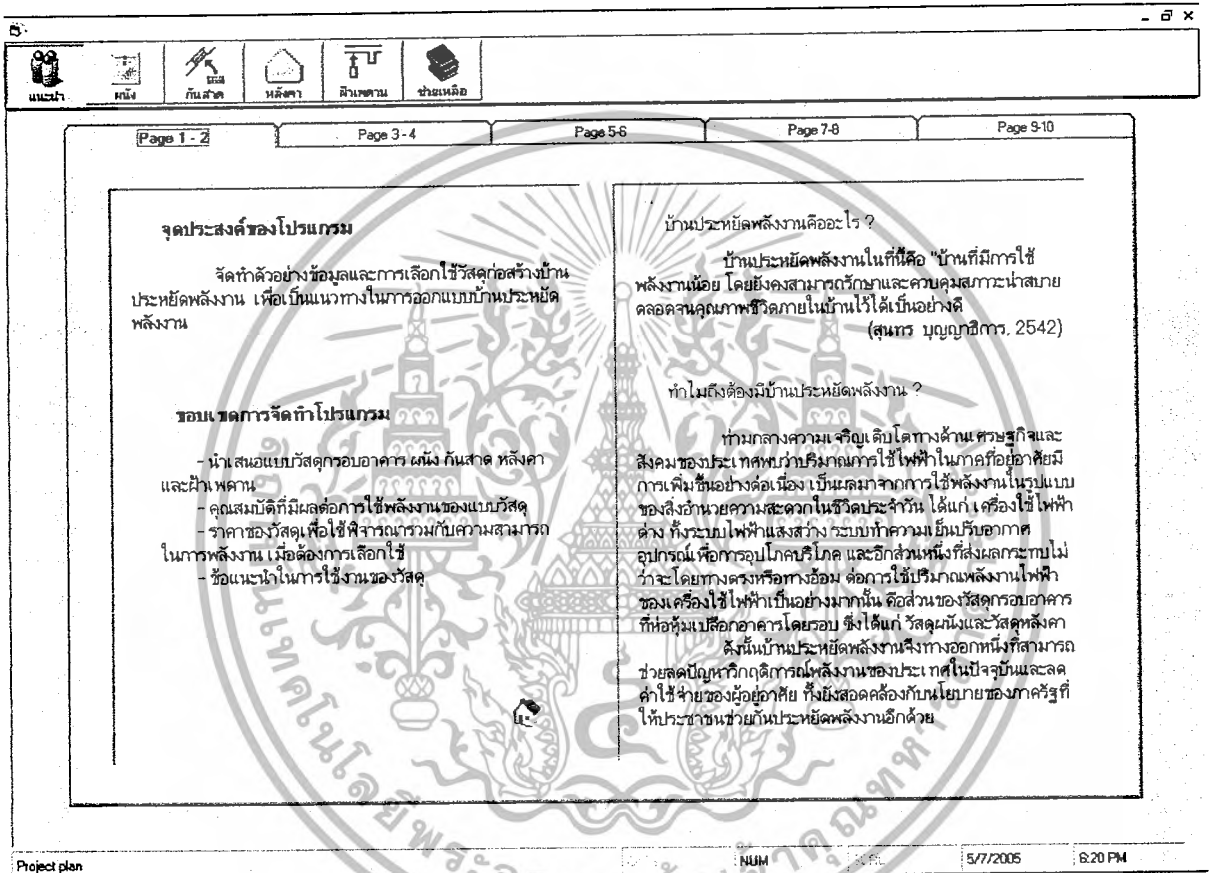 แนะนำ ผนัง กันสาด หลังคา ฝ้าเพดาน ช่วยเหลือ
Page 1 - 2 Page 3 - 4 Page 5-6 Page 7-8 Page 9-10
จุดประสงค์ของโปรแกรม
จัดทำตัวอย่างข้อมูลและการเลือกใช้วัสดุก่อสร้างบ้าน
ประหยัดพลังงาน เพื่อเป็นแนวทางในการออกแบบบ้านประหยัด
พลังงาน
ขอบเขตการจัดทำโปรแกรม
- นำเสนอแบบวัสดุกรอบอาคาร ผนัง กันสาด หลังคา
และฝ้าเพดาน
- คุณสมบัติที่มีผลต่อการใช้พลังงานของแบบวัสดุ
- ราคาของวัสดุเพื่อใช้พิจารณารวมกับความสามารถ
ในการพลังงาน เมื่อต้องการเลือกใช้
- ข้อแนะนำในการใช้งานของวัสดุ
บ้านประหยัดพลังงานคืออะไร ?
บ้านประหยัดพลังงานในที่นี้คือ "บ้านที่มีการใช้
พลังงานน้อย โดยยังคงสามารถรักษาและควบคุมสภาวะน่าสบาย
ตลอดจนคุณภาพชีวิตภายในบ้านไว้ได้เป็นอย่างดี
(สุนทร บุญญาธิการ, 2542)
ทำไมถึงต้องมีบ้านประหยัดพลังงาน ?
ท่ามกลางความเจริญเติบโตทางด้านเศรษฐกิจและ
สังคมของประเทศพบว่าปริมาณการใช้ไฟฟ้าในภาคที่อยู่อาศัยมี
การเพิ่มขึ้นอย่างต่อเนื่อง เป็นผลมาจากการใช้พลังงานในรูปแบบ
ของสิ่งอำนวยความสะดวกในชีวิตประจำวัน ได้แก่ เครื่องใช้ไฟฟ้า
ต่าง ทั้งระบบไฟฟ้าแสงสว่าง ระบบทำความเย็นปรับอากาศ
อุปกรณ์เพื่อการอุปโภคบริโภค และอีกส่วนหนึ่งที่ส่งผลกระทบไม่
ว่าจะโดยทางตรงหรือทางอ้อม ต่อการใช้ปริมาณพลังงานไฟฟ้า
ของเครื่องใช้ไฟฟ้าเป็นอย่างมากนั้น คือส่วนของวัสดุกรอบอาคาร
ที่ห่อหุ้มเปลือกอาคารโดยรอบ ซึ่งได้แก่ วัสดุผนังและวัสดุหลังคา
ดังนั้นบ้านประหยัดพลังงานจึงทางออกหนึ่งที่สามารถ
ช่วยลดปัญหาวิกฤติการณ์พลังงานของประเทศในปัจจุบันและลด
ค่าใช้จ่ายของผู้อยู่อาศัย ทั้งยังสอดคล้องกับนโยบายของภาครัฐที่
ให้ประชาชนช่วยกันประหยัดพลังงานอีกด้วย
Project plan NUM 5/7/2005 6:20 PM